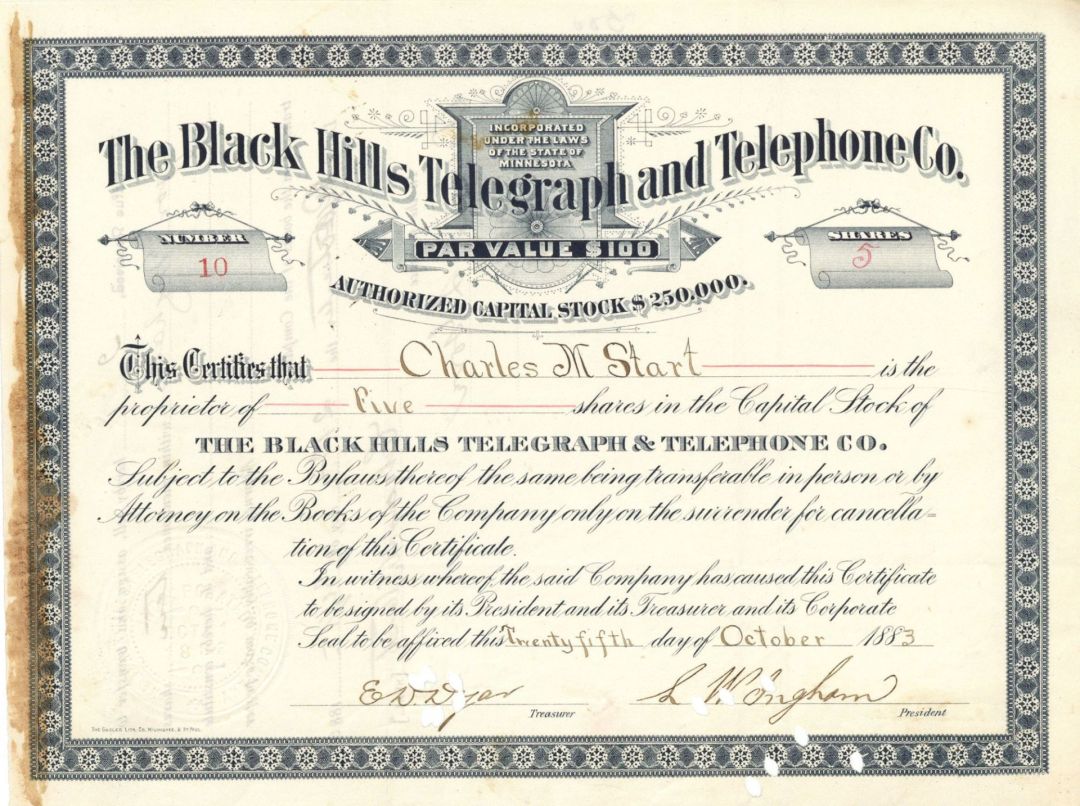 INCORPORATED
UNDER THE LAWS
OF THE STATE OF
MINNESOTA
The Black Hills Telegraph and Telephone Co.
NUMBER
10
PAR VALUE $100
SHARES
5
AUTHORIZED CAPITAL STOCK $250,000.
This Certifies that Charles M Start is the
proprietor of Five shares in the Capital Stock of
THE BLACK HILLS TELEGRAPH & TELEPHONE CO.
Subject to the Bylaws thereof the same being transferable in person or by
Attorney on the Books of the Company only on the surrender for cancella=
tion of this Certificate.
In witness whereof, the said Company has caused this Certificate
to be signed by its President and its Treasurer and its Corporate
Seal to be affixed this Twenty fifth day of October 1883
E D Dyar
Treasurer
L W Ingham
President
THE GUGLER LITH. CO. MILWAUKEE, & ST. PAUL.